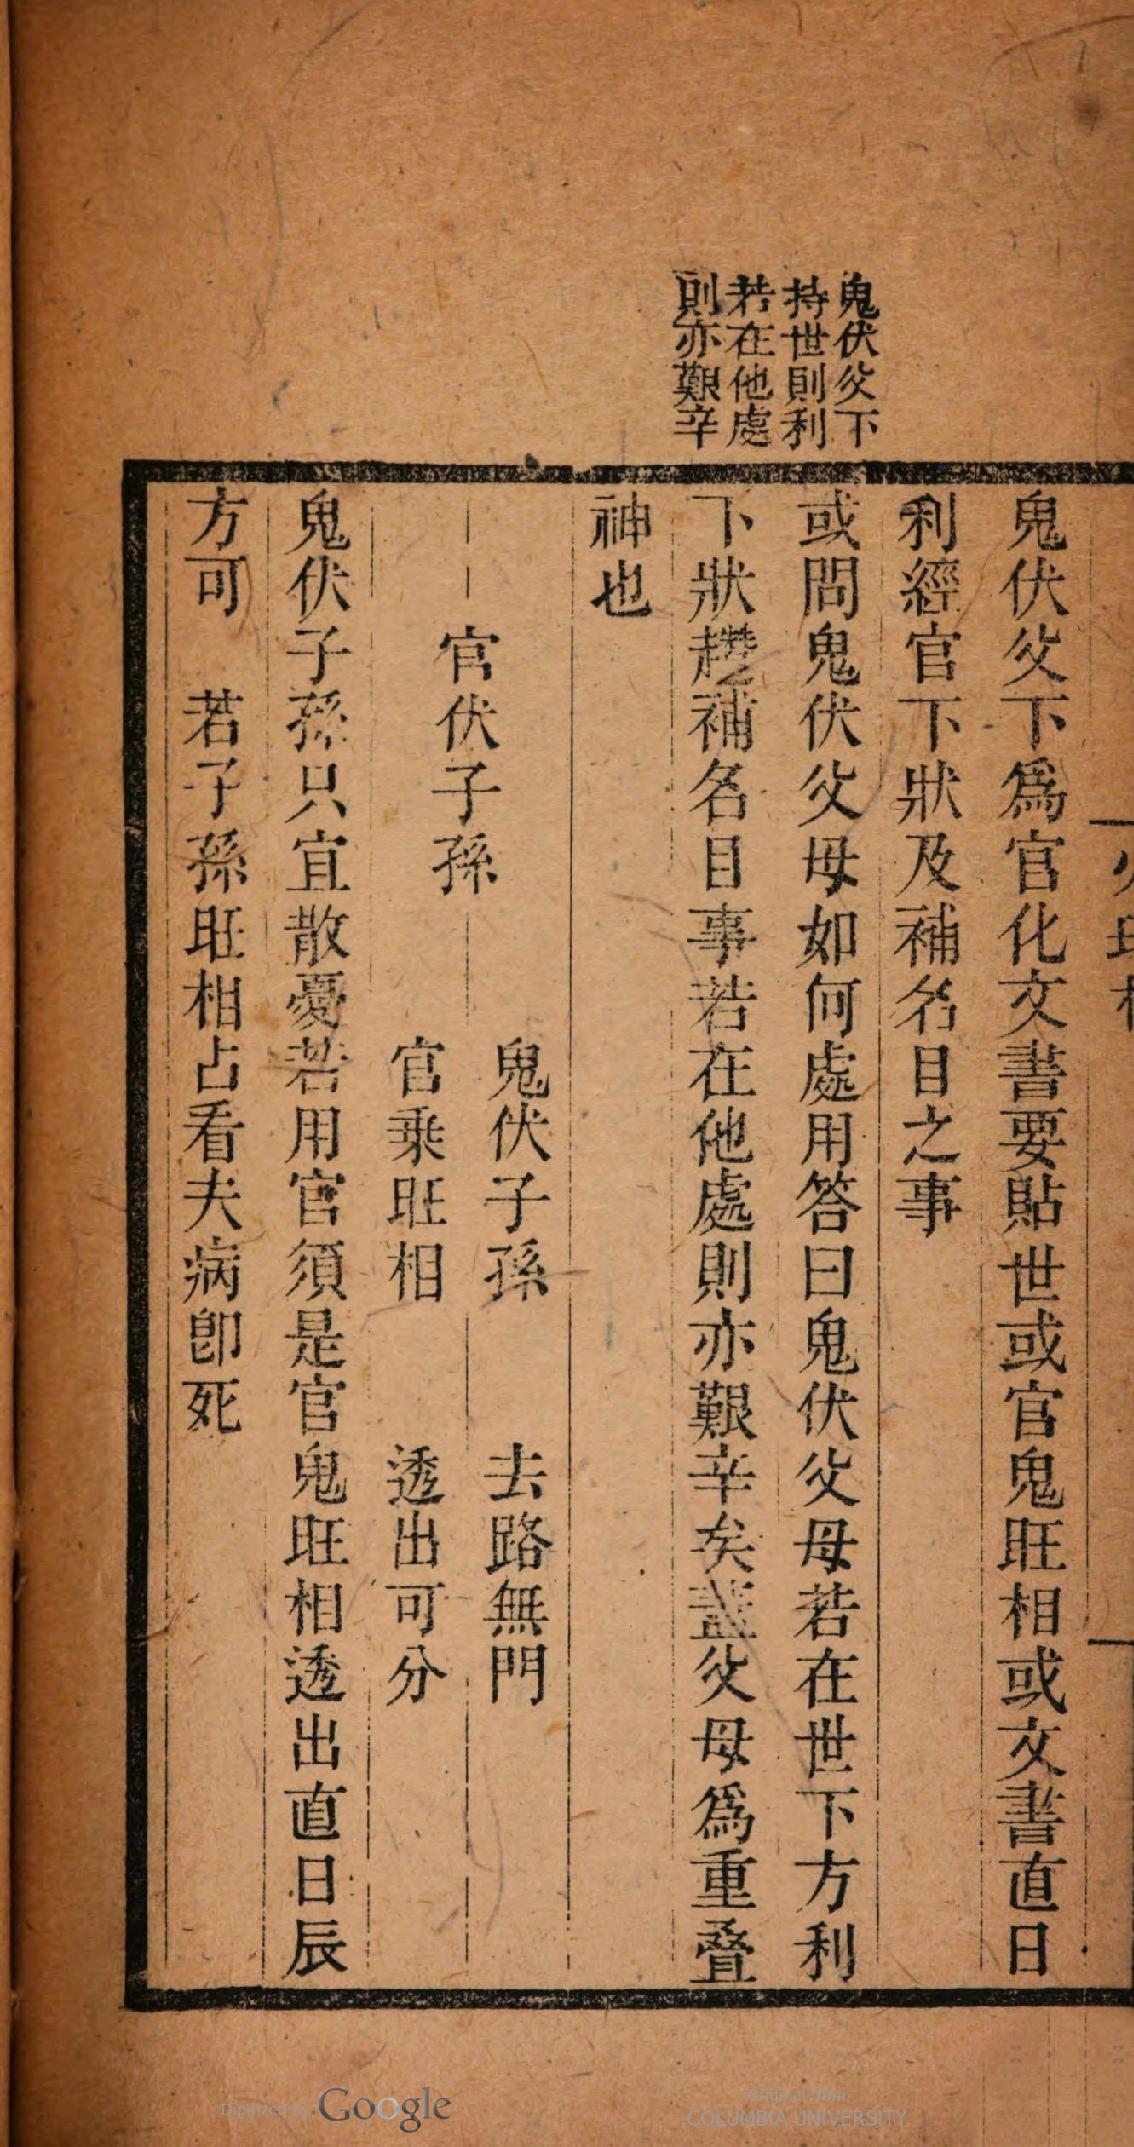 鬼伏父下
持世則利
若在他處
則亦艱辛
鬼伏父下爲官化文書要貼世或官鬼旺相或文書直日
利經官下狀及補名目之事
或問鬼伏父母如何處用答曰鬼伏父母若在世下方利
下狀趲補名目事若在他處則亦艱辛矣蓋父母爲重疊
神也
官伏子孫
鬼伏子孫 去路無門
官乘旺相 透出可分
鬼伏子孫只宜散憂若用官須是官鬼旺相透出直日辰
方可 若子孫旺相占看夫病卽死
Digitized by Google
Original from
COLUMBIA UNIVERSITY